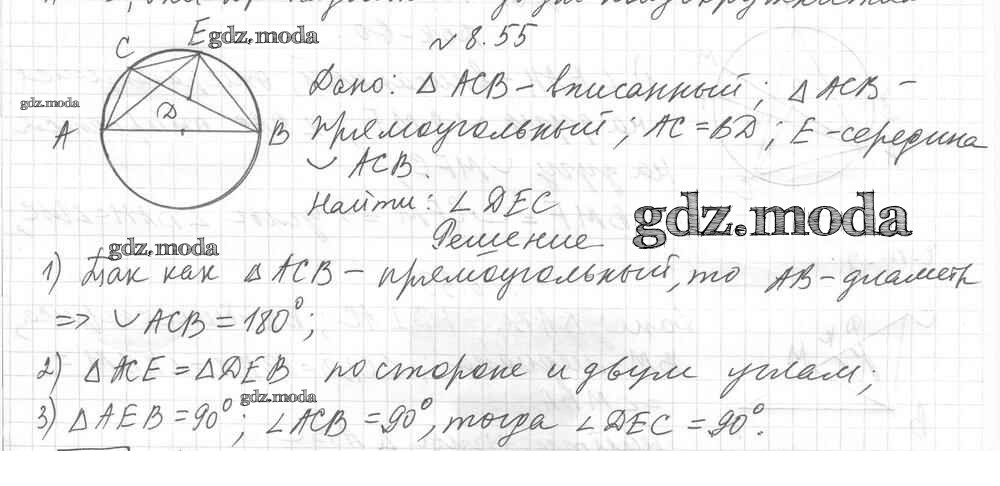 C E gdz.moda
№ 8.55
gdz.moda
A D B
Дано: △ ACB – вписанный; △ ACB –
прямоугольный; AC = BD; E – середина
◡ ACB.
Найти: ∠ DEC
gdz.moda
Решение
gdz.moda
1) Так как △ ACB – прямоугольный, то AB – диаметр
=> ◡ ACB = 180°;
2) △ ACE = △ DEB по стороне и двум углам;
gdz.moda
3) △ AEB = 90°; ∠ ACB = 90°, тогда ∠ DEC = 90°.